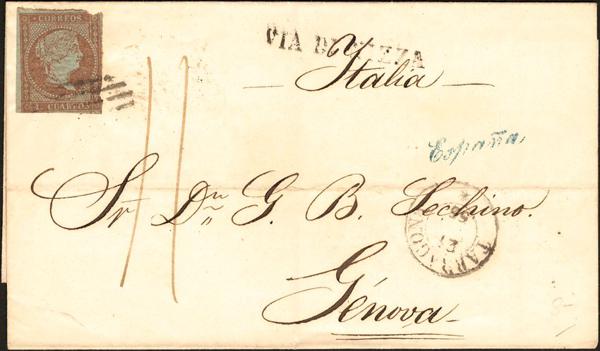 CORREOS
CUARTOS
VIA DE
Italia
España,
Sr Dn G. B. Sechino.
TARRAGONA
Génova